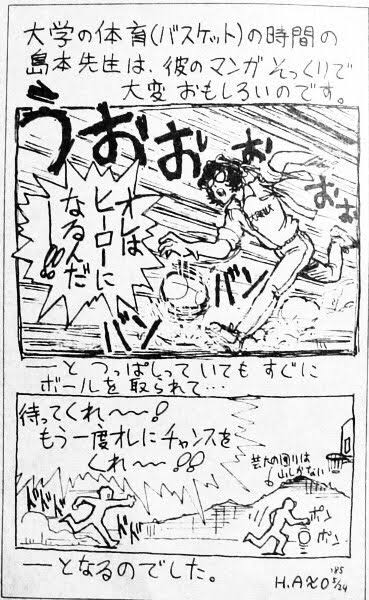 大学の体育(バスケット)の時間の
島本先生は、彼のマンガそっくりで
大変おもしろいのです。
うおおおおおお
オレは
ヒーローに
なるんだ!!!
バン
バン
—と つっぱしって いても すぐに
ボールを取られて…
待ってくれ〜!
もう一度オレにチャンスを
くれ〜!!
芸大の周りは
山しかない
ドドドド
ポン
ポン
—となるのでした。
'85
H.Aγo 5/24